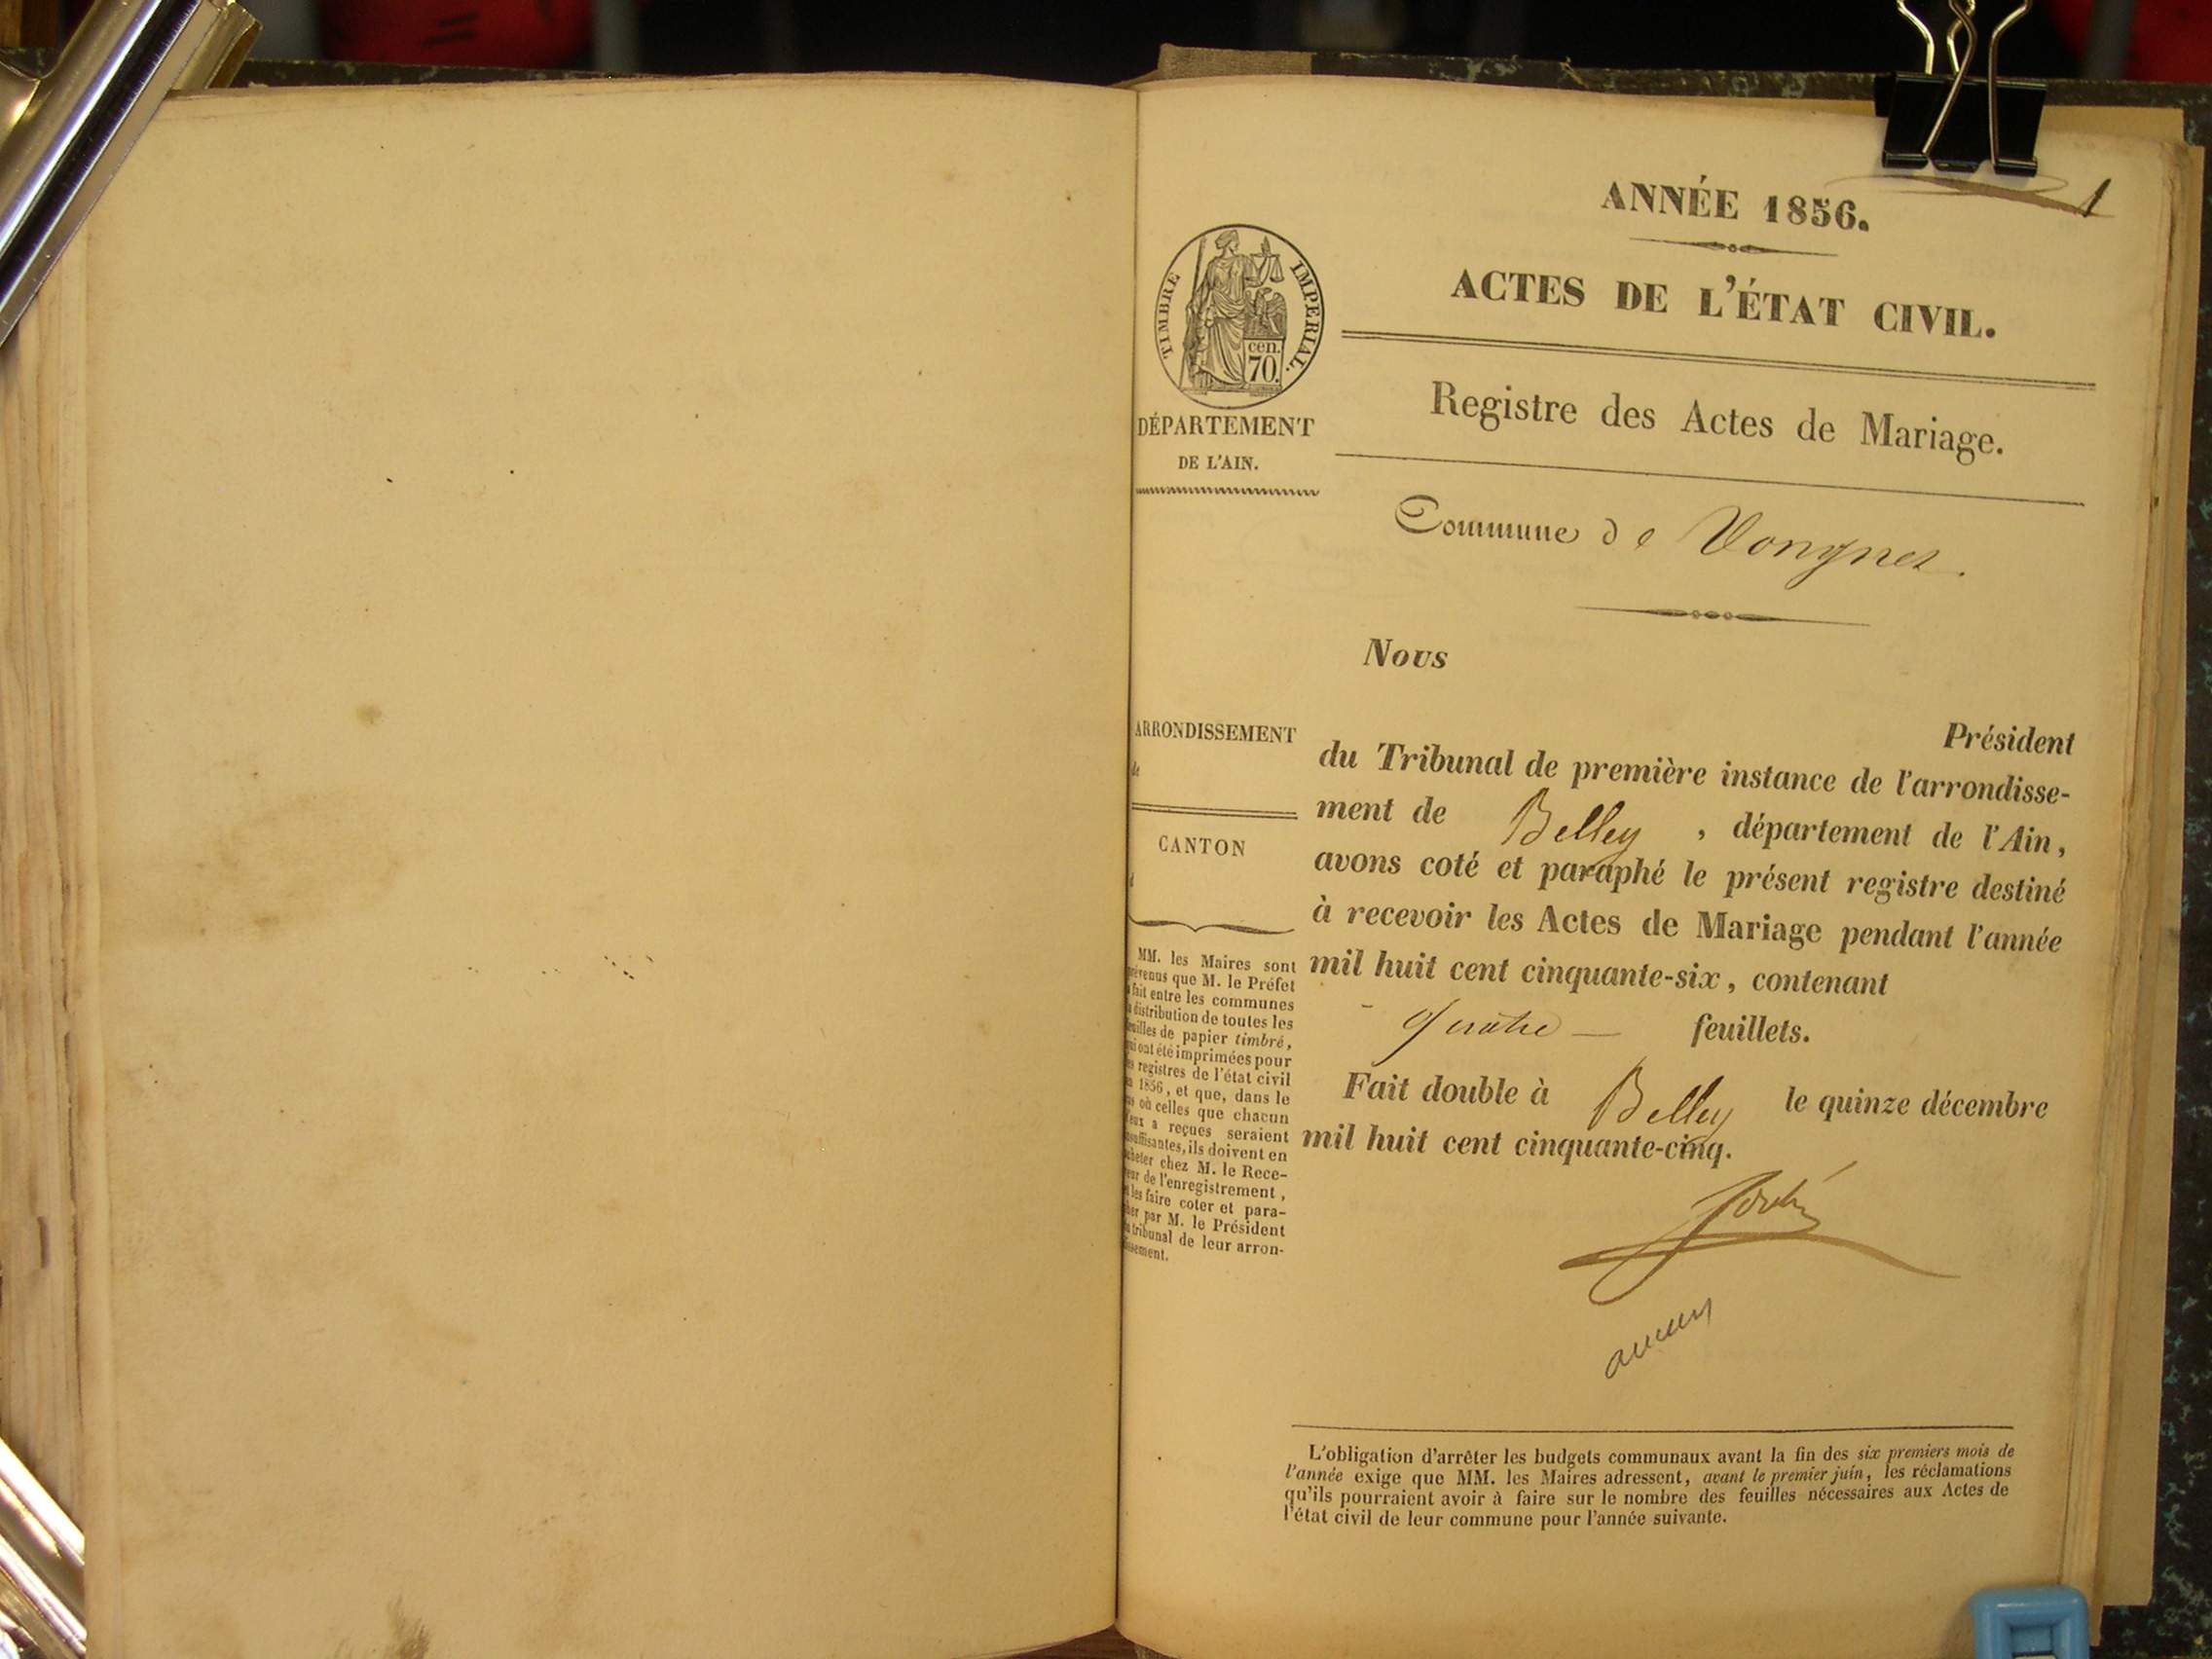 1
ANNÉE 1856.
ACTES DE L'ÉTAT CIVIL.
TIMBRE IMPERIAL.
cen.
70.
DÉPARTEMENT
DE L'AIN.
Registre des Actes de Mariage.
Commune de Vongnes.
Nous
Président
du Tribunal de première instance de l'arrondisse-
ment de Belley, département de l'Ain,
avons coté et paraphé le présent registre destiné
à recevoir les Actes de Mariage pendant l'année
mil huit cent cinquante-six, contenant
- quatre — feuillets.
Fait double à Belley le quinze décembre
mil huit cent cinquante-cinq.
ARRONDISSEMENT
de
CANTON
d
MM. les Maires sont
prévenus que M. le Préfet
a fait entre les communes
la distribution de toutes les
feuilles de papier timbré,
qui ont été imprimées pour
les registres de l'état civil
en 1856, et que, dans le
cas où celles que chacun
d'eux a reçues seraient
insuffisantes, ils doivent en
acheter chez M. le Rece-
veur de l'enregistrement,
et les faire coter et para-
pher par M. le Président
du tribunal de leur arron-
dissement.
L'obligation d'arrêter les budgets communaux avant la fin des six premiers mois de
l'année exige que MM. les Maires adressent, avant le premier juin, les réclamations
qu'ils pourraient avoir à faire sur le nombre des feuilles nécessaires aux Actes de
l'état civil de leur commune pour l'année suivante.